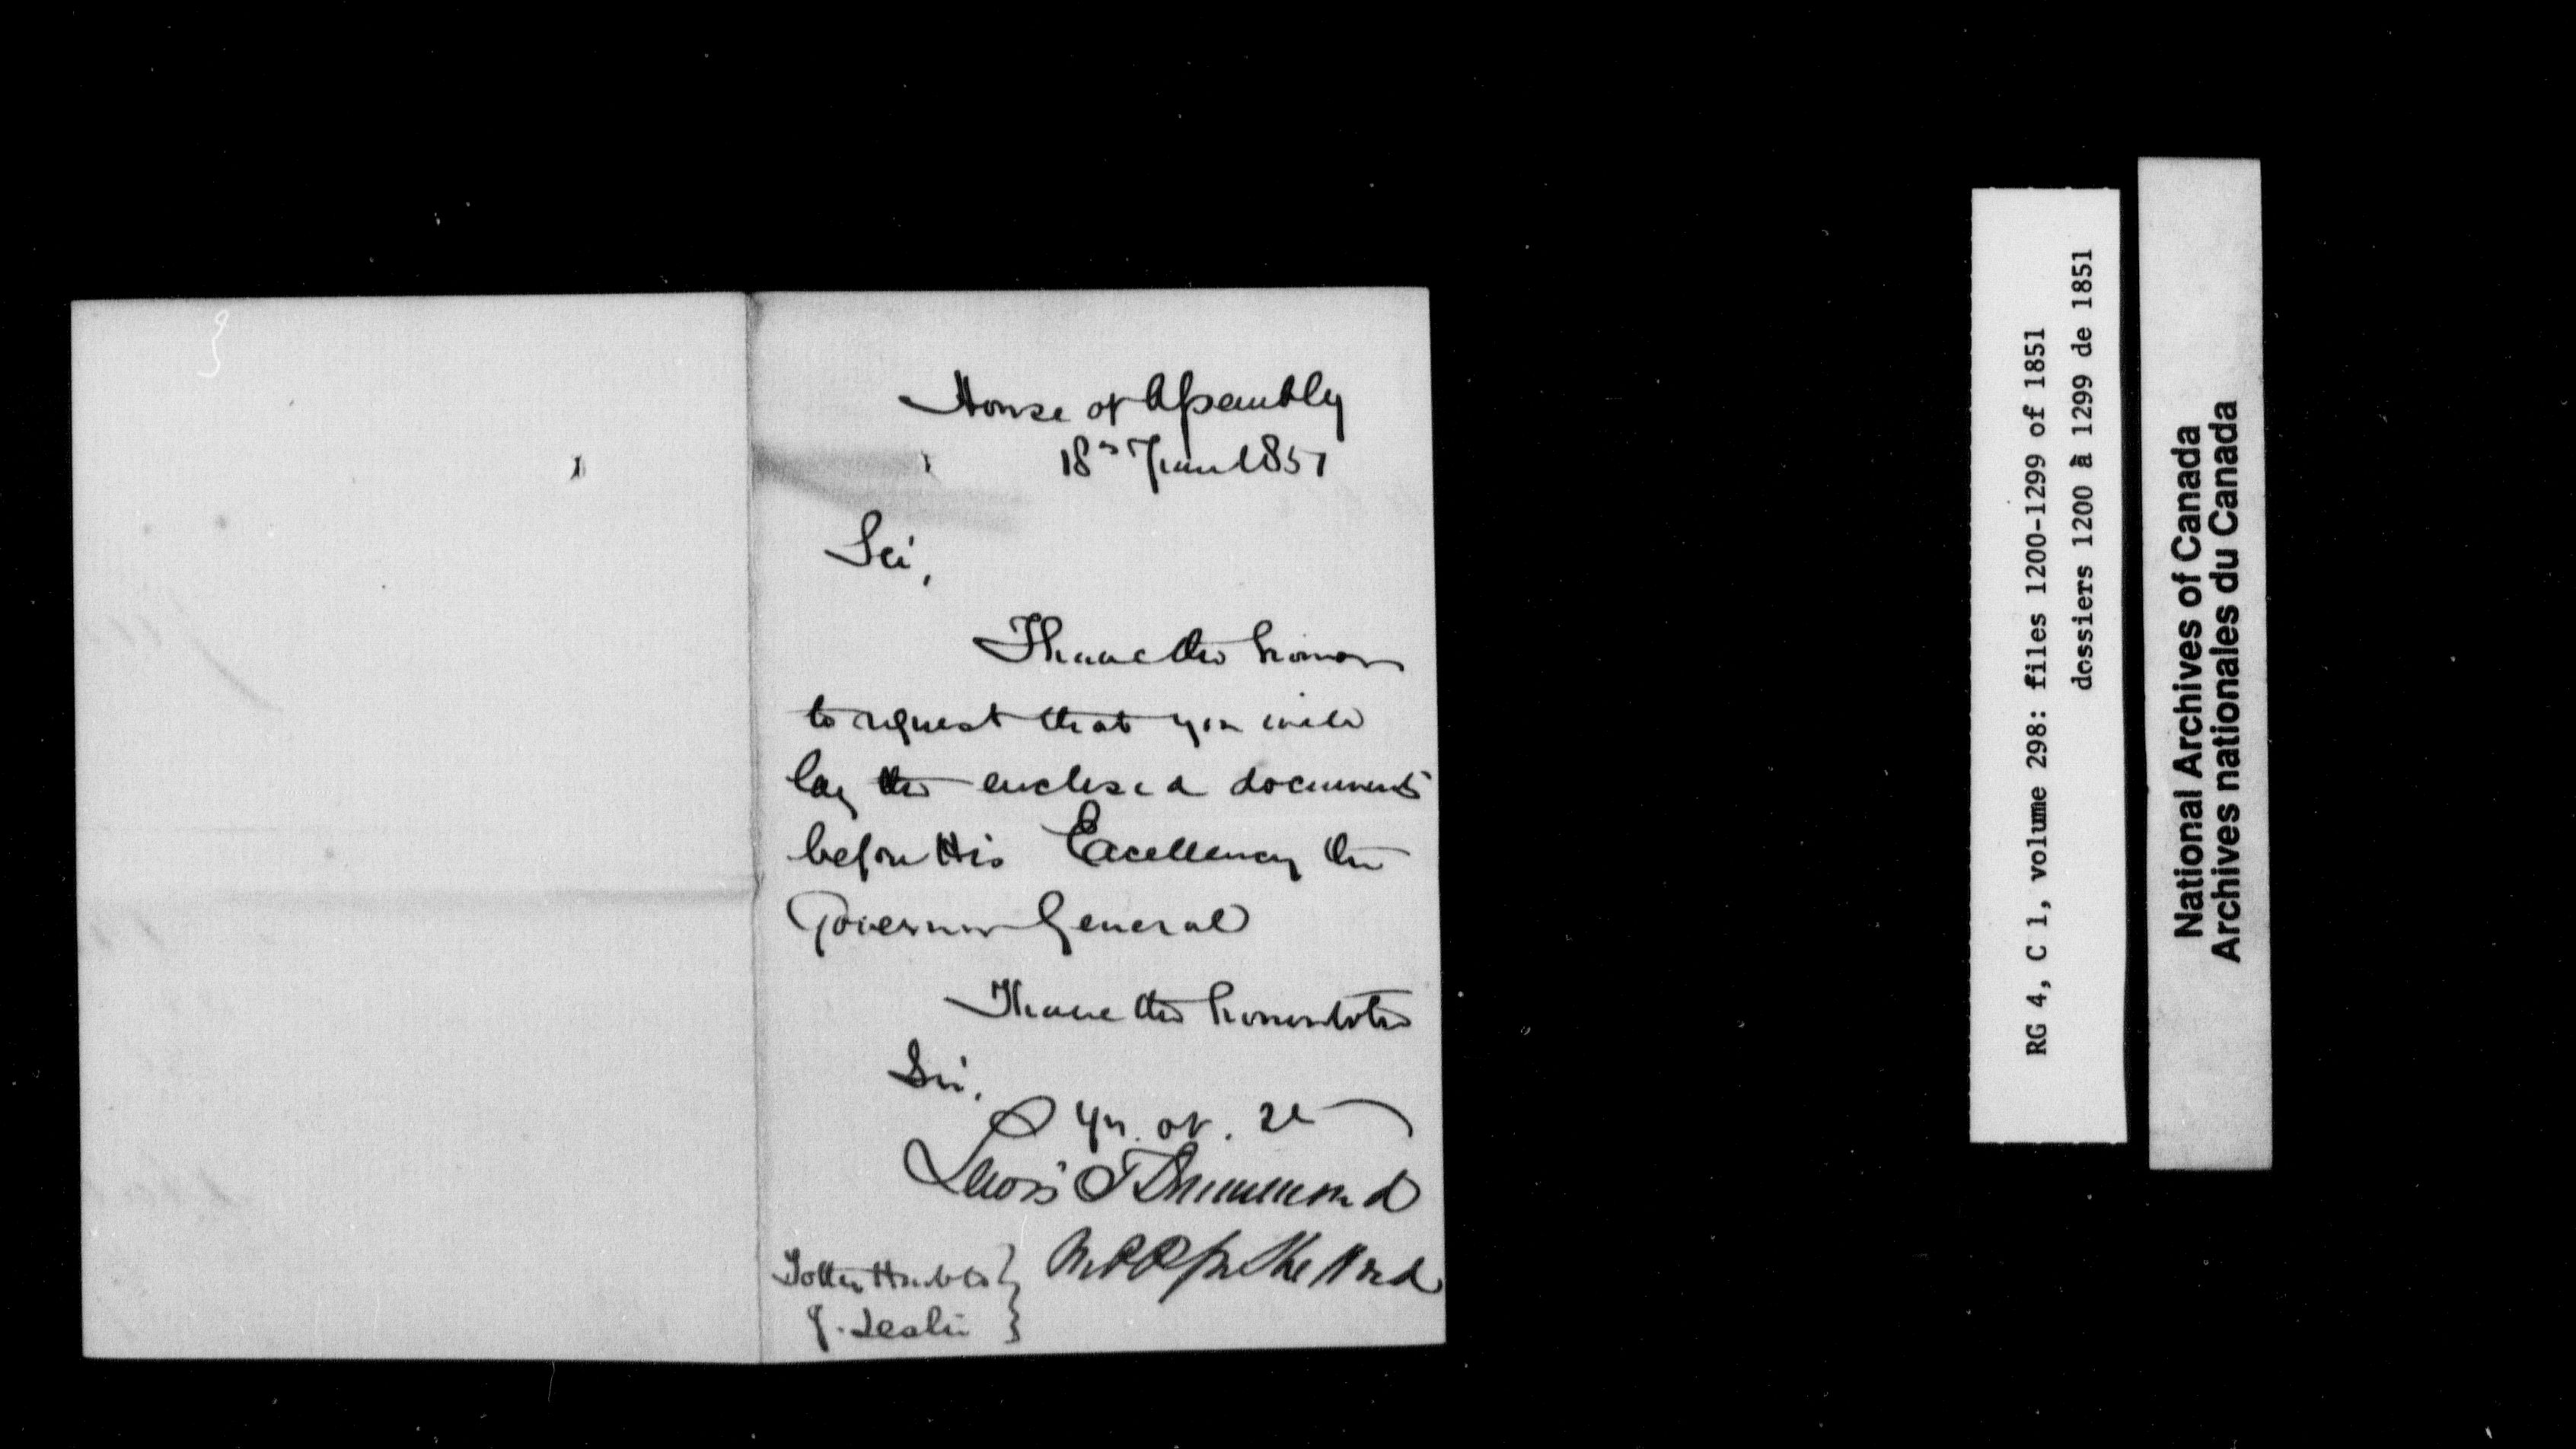 House of Assembly
18th June 1851
Sir,
I have the honor
to request that you will
lay the enclosed documents
before His Excellency the
Governor General
I have the honor to be
Sir,
Yr. ob. St
Lewis T Drummond
MPP for Shefford
To the Honble
J. Leslie
RG 4, C 1, volume 298: files 1200-1299 of 1851
dossiers 1200 à 1299 de 1851
National Archives of Canada
Archives nationales du Canada